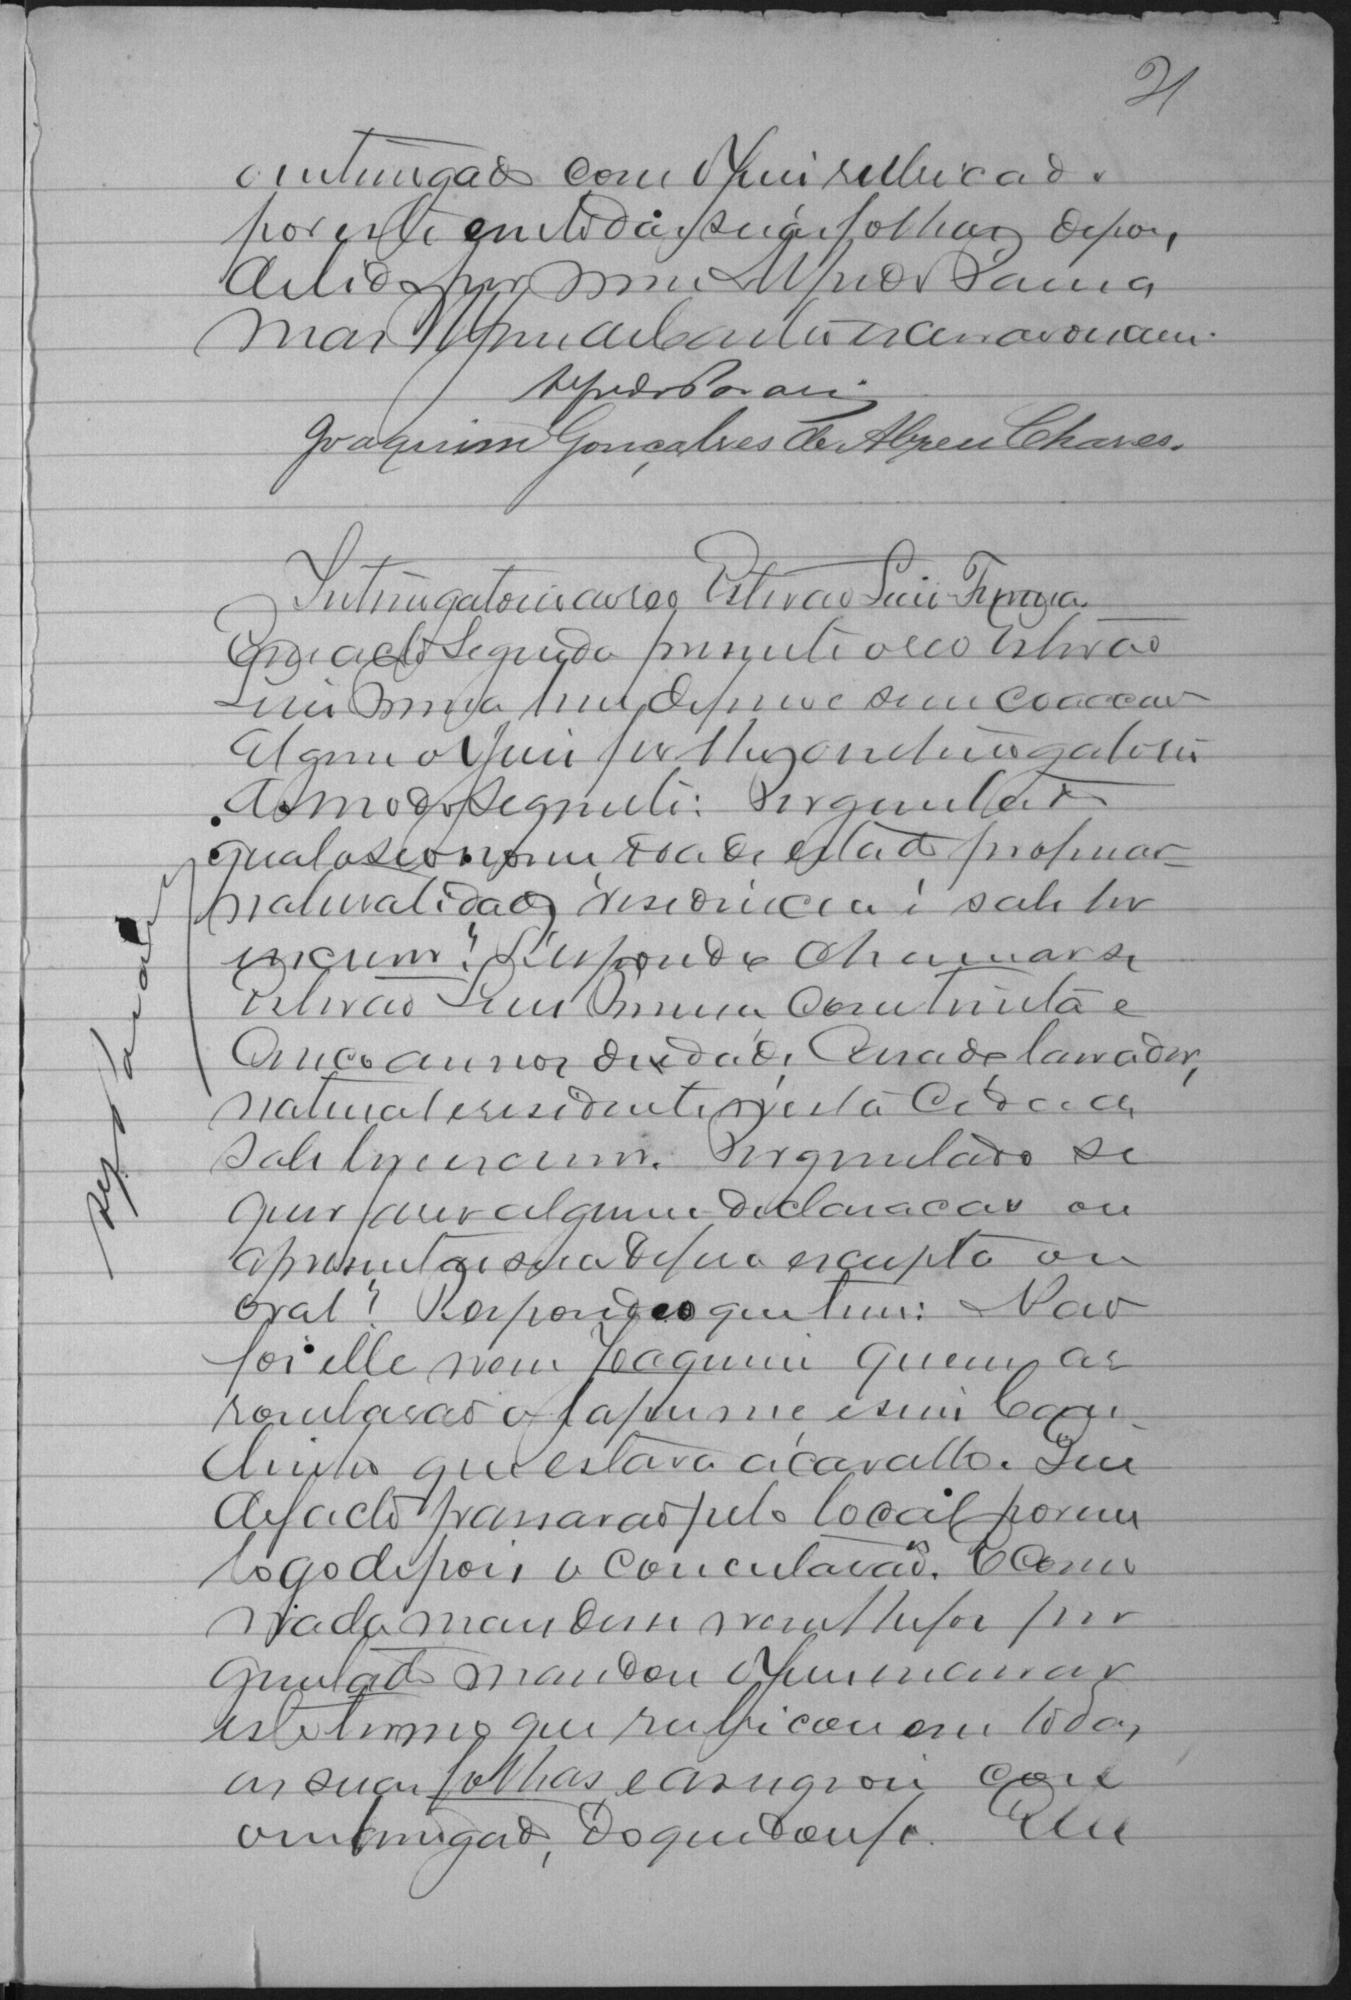 21
o interrogado com o Juiz rubricado
por este em todas suas folhas depois
de lido por mim Alfredo
Joaquim Gonçalves de Abreu Chaves.
Interrogatorio ao reo Estevão Luiz
Em acto seguido presente o reo Estevão
Luiz livre de ferros e sem coacção
alguma o Juiz fez lhe o interrogatorio
do modo seguinte: Perguntado
qual o seu nome, idade, estado, profissão
naturalidade, residencia e sabe ler
escrever? Respondeu chamar-se
Estevão Luiz com trinta e
cinco annos de idade, lavrador,
natural e residente nesta Cidade
sabe ler e escrever. Perguntado se
quer fazer alguma declaração ou
apresentar sua defesa escripta ou
oral? Respondeo que tem: Não
foi elle nem Joaquim quem ar
rombarão o tapume e sim
que estava a cavallo. Que
de facto passarão pelo local porem
logo depois o concertarão. E como
nada mais disse nem lhe foi per
guntado mandou o Juiz encerrar
este termo que rubricou em todas
as suas folhas e assignou com
o interrogado, do que dou fé. Eu